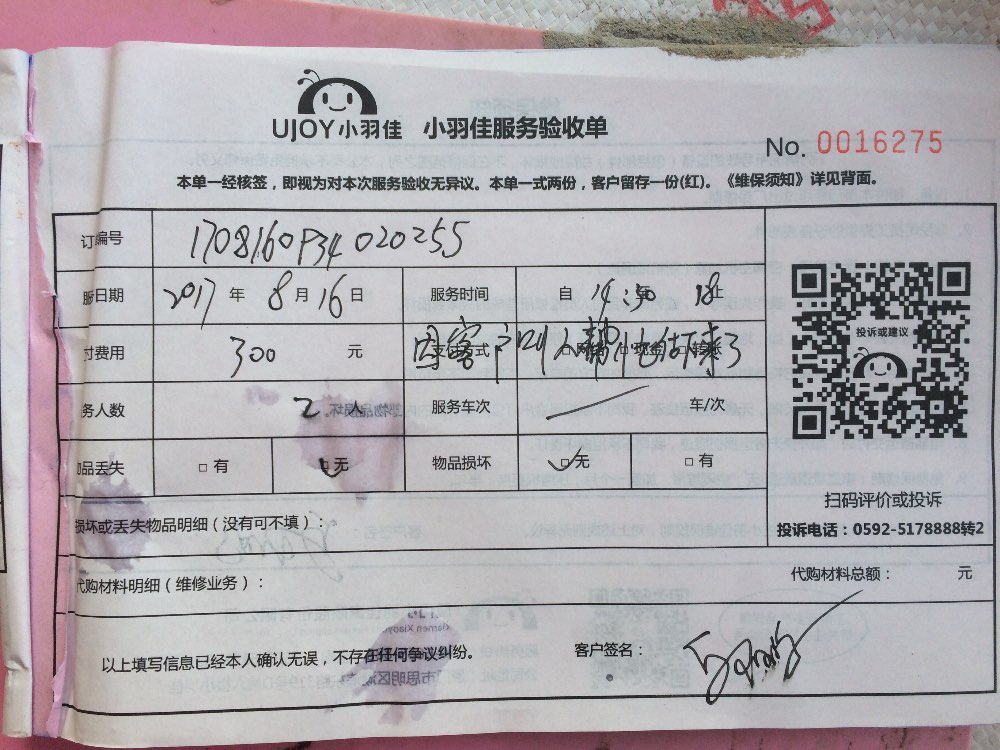 UJOY小羽佳 小羽佳服务验收单
No. 0016275
本单一经核签，即视为对本次服务验收无异议。本单一式两份，客户留存一份(红)。《维保须知》详见背面。
订编号 1708160P34020255
服日期 2017 年 8 月 16 日 服务时间 自 14:30 18 止
投诉或建议
付费用 300 元 支付方式 □网 □现金 □转账
因客户叫人帮他打来了
务人数 2 人 服务车次 车/次
物品丢失 □有 □无 物品损坏 □无 □有
扫码评价或投诉
损坏或丢失物品明细（没有可不填）：
投诉电话：0592-5178888转2
代购材料明细（维修业务）： 代购材料总额： 元
以上填写信息已经本人确认无误，不存在任何争议纠纷。 客户签名：